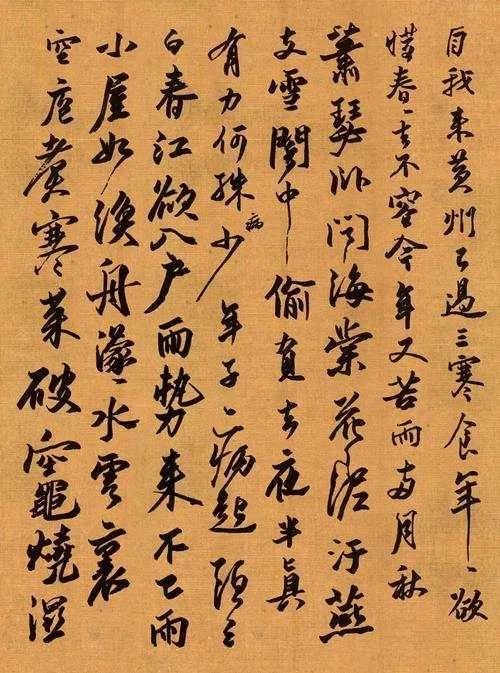 自我来黄州已過三寒食年〻欲
惜春〻去不容今年又苦雨兩月秋
蕭瑟卧聞海棠花泥汙燕
支雪闇中偷負去夜半真
有力何殊病少年子〻病起頭已
白春江欲入户雨勢来不已雨
小屋如漁舟濛〻水雲裏
空庖煑寒菜破竈燒濕